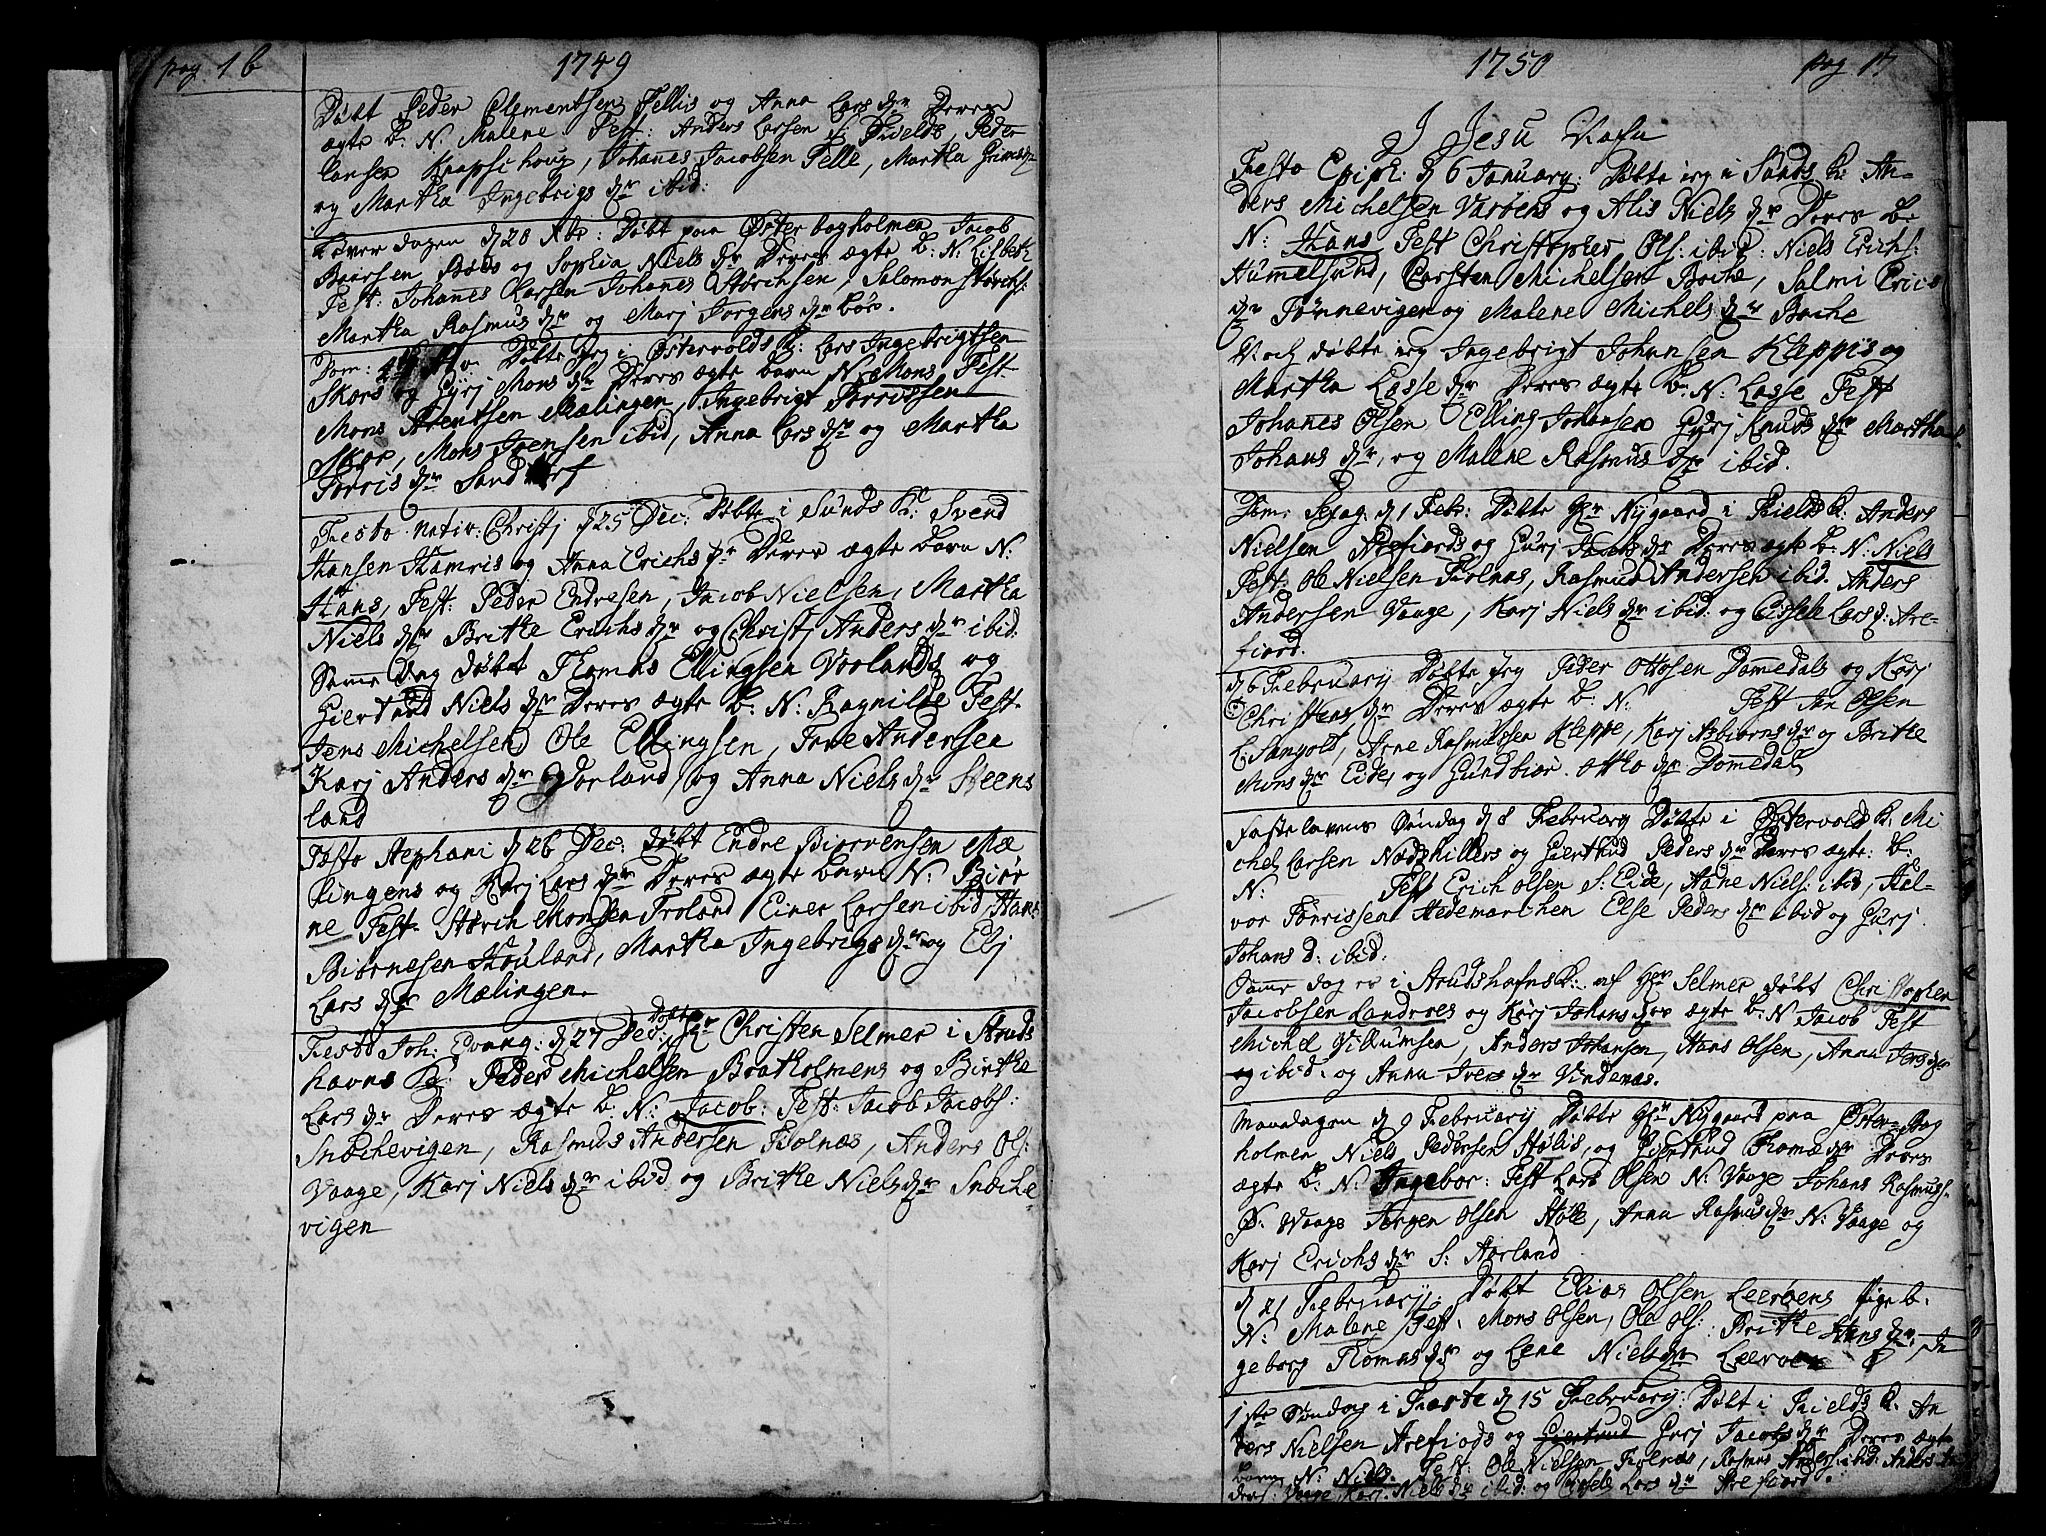 pag. 16
1749
Døbt Peder Clementsen Tellis og Anna Lars dr Deres
ægte b: N. Malene Test: Anders Larsen Peder
Larsen Knapschoug, Johanes Jacobsen Telle, Martha
og Martha Ingebrigs dr ibid:
Løverdagen d 20 Døbt paa Østerbogholmen Jacob
Baarsen og Sophia Niels dr Deres ægte b: N. Lisbeth
Test: Johanes Larsen Johanes Størchsen, Salomon Størchs:
Martha Rasmus dr og Marj Jorgens dr
Dom: 4 Adv Døbte Jeg i Østervolds K: Lars Ingebrigtsen
Skars og Gurj Mons dr Deres ægte barn N. Mons Test
Mons Arentsen Mælingen, Ingebrigt Torrissen
Skar, Mons Jensen ibid, Anna Lars dr og Martha
Torris dr
Festo Nativ: Christj d 25 Dec: Døbte i Sunds K: Svend
Hansen Hamris og Anna Erichs dr Deres ægte barn N:
Hans, Test: Peder Endresen, Jacob Nielsen, Martha
Niels dr Brithe Erichs dr og Christj Anders dr ibid:
Samme Dag døbt Thomas Ellingsen Vorlands og
Giertrud Niels dr Deres ægte b: N: Ragnilde Test.
Jens Michelsen Ole Ellingsen, Arne Andersen
Karj Anders dr Vorland og Anna Niels dr Steens
land
Festo Stephani d 26 Dec: døbt Endre Biørnensen Mæ
lingens og Karj Lars dr Deres ægte barn N: Biør
ne Test. Størch Monsen Troland Einer Larsen ibid, Hans
Biørnesen Houland, Martha Ingebrigs dr og Elj
Lars dr Mælingen.
Festo Joh: Evang: d 27 Dec: Døbte Hr Christen Selmer i Struds
havns K: Peder Michelsen Bratholmens og Birthe
Lars dr Deres ægte b: N: Jacob: Test: Jacob Jacobs:
Snechevigen, Rasmus Andersen Fiolnæs, Anders Ols:
Vaage, Karj Niels dr ibid og Brithe Niels dr Sneche
vigen
1750
pag 17
I Jesu Nafn
Festo Epiph: d 6 January: Døbte jeg i Sunds K: An-
ders Michelsen og Alis Niels dr Deres b:
N: Hans Test Christopher Ols: ibid: Niels Erichs:
Hummelsund, Carsten Michelsen Bache, Salmi Erics
dr Tønnevigen og Malene Michels dr Bache
Noch døbte jeg Ingebrigt Johansen Kleppis og
Martha Lasse dr Deres ægte b. N. Lasse Test
Johanes Olsen, Elling Johansen Gurj Knuds dr Martha
Johans dr, og Malene Rasmus dr ibid.
Dom: Sexag: d 1 Feb: Døbte Hr Nygaard i Fields K: Anders
Nielsen Arefiords og Gurj Jacobs dr Deres ægte b: N: Niels
Test: Ole Nielsen Fiolnæs, Rasmus Andersen ibid. Anders
Andersen Vaage, Karj Niels dr ibid: og Cissele Lars d: Are-
fiord.
d 6 February Døbte Jeg Peder Ottosen Domedals og Karj
Christens dr Deres ægte b: N: Test Jan Olsen
Langolt, Arne Rasmussen Kleppe, Karj Asbiorns dr og Brithe
Mons dr Eide, og Gundbiør Otto dr Domedal
Fastelavens Søndag d 8 February Døbte i Østervold K. Mi
chel Larsen og Giertrud Peders dr Deres ægte: b:
N: Test Erich Olsen S: Eide, Niels: ibid, Hal-
vor Torrissen Hedemarchen Else Peders dr ibid og Gurj
Johans d: ibid:
Samme dag er i Strudshafns K: af Hr Selmer døbt Christopher
Jacobsen Landroes og Karj Johans dr ægte b. N Jacob Test
Michel Villumsen, Anders Johansen, Hans Olsen, Anna
og ibid: og Anna Ivers dr Vindenæs.
Mandagen d 9 February Døbte Hr Nygaard paa Østerbog
holmen Niels Pedersen Hølis, og Giertrud Thomæ dr Deres
ægte b: N: Ingebor: Test Lars Olsen N: Vaage Johans Rasmuss.
S: Vaage Jørgen Olsen Anna Rasmus dr N: Vaage og
Karj Erichs dr S:
d 21 February: Døbt Elias Olsen Leeröens pige b.
N: Malene Test. Mons Olsen, Ole Ols: Brithe Hans dr, In
geborg Thomas dr og Lene Niels dr Leeröen
1ste Søndag i Faste d 15 February: Døbt i Fields K. An
ders Nielsen Arefiods og Giertrud Gurj Jacobs dr Deres ægte
barn N: Niels. Test: Ole Nielsen Fiolnæs, Rasmus Anders: ibid: Anders An
ders: Vaage Karj Niels dr ibid: og Cissele Lars dr Arefiord.